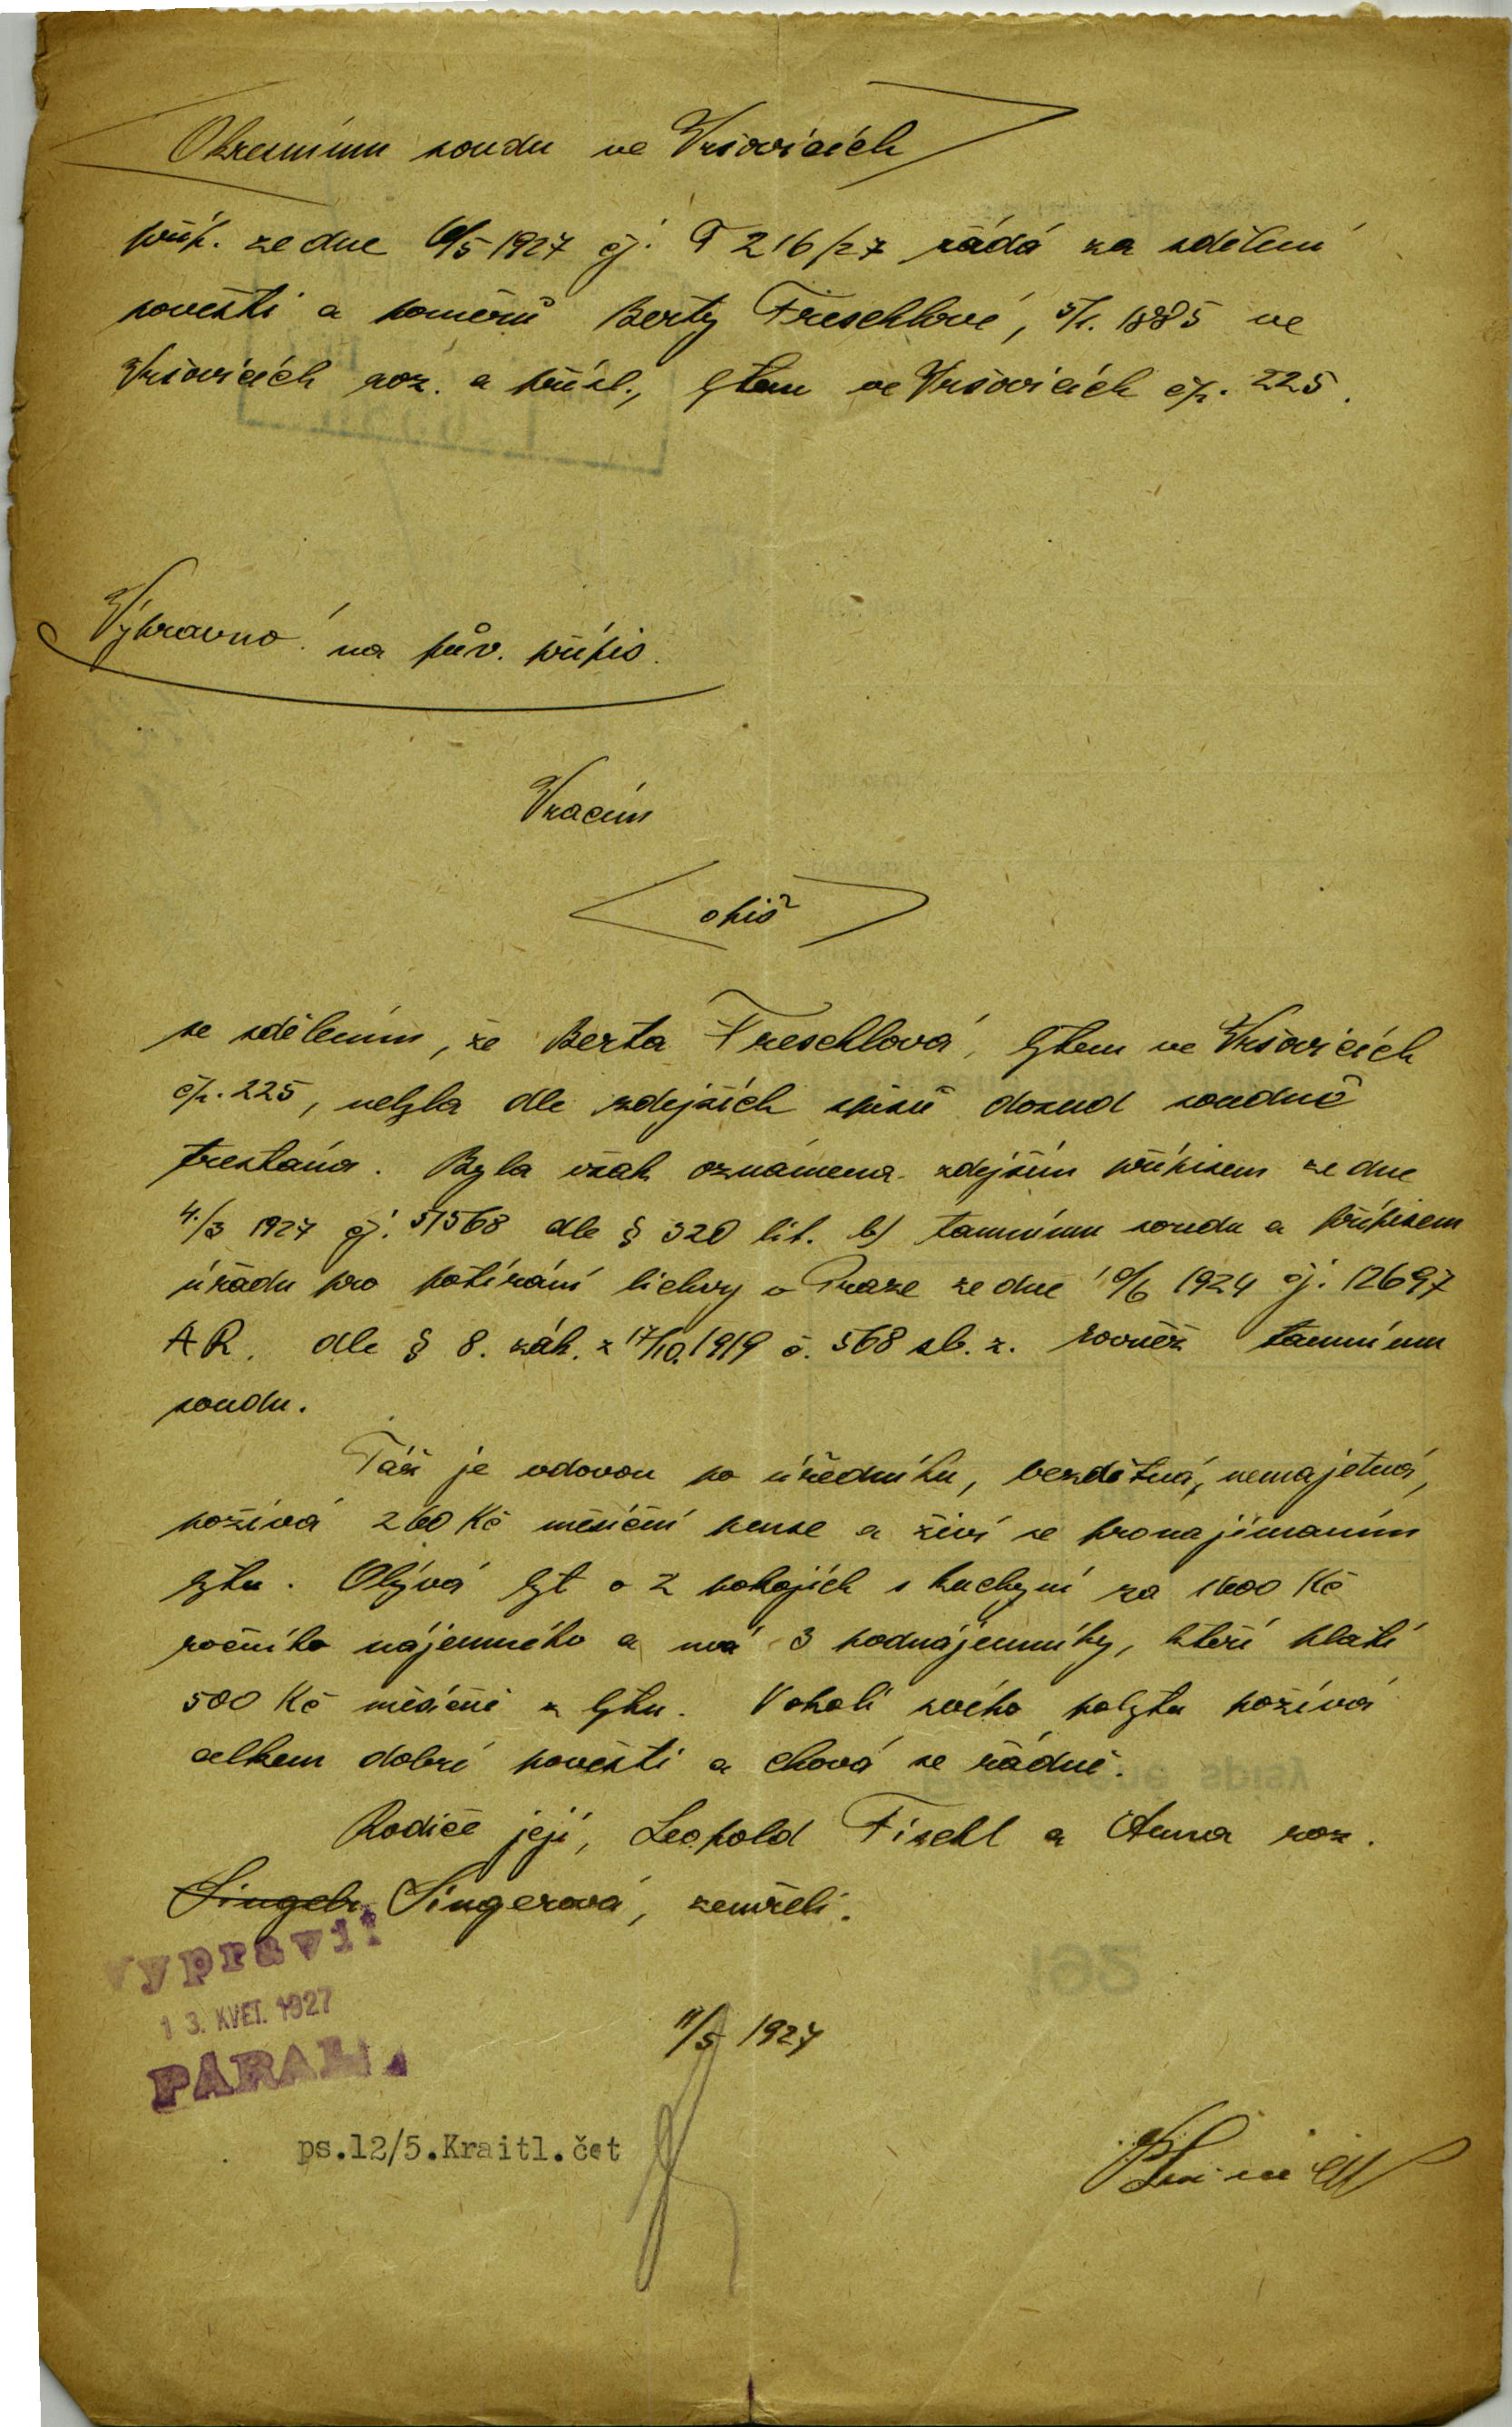 Okresnímu soudu ve Vršovicích
příp. ze dne 6/5 1927 čj. T 216/27 žádá za sdělení
pověsti a poměrů Berty Freschlové, 5/1. 1885 ve
Vršovicích nar. a přísl., bytem ve Vršovicích čp. 225.
Výpravno: na pův. přípis.
Vracím
opis
se sdělením, že Berta Freschlová, bytem ve Vršovicích
čp. 225, nebyla dle zdejších spisů dosud soudně
trestána. Byla však oznámena zdejším přípisem ze dne
4./3 1927 čj. 51568 dle § 320 lit. b) tamnímu soudu a přípisem
úřadu pro potírání lichvy v Praze ze dne 10/6 1924 čj. 12697
AR. dle § 8. zák. z 17/10.1919 č. 568 sb. z. rovněž tamnímu
soudu.
Táž je vdovou po úředníku, bezdětná, nemajetná,
požívá 260 Kč měsíční pense a živí se pronajímaním
bytu. Obývá byt o 2 pokojích s kuchyní za 1600 Kč
ročního nájemného a má 3 podnájemníky, kteří platí
500 Kč měsíčně z bytu. V okolí svého pobytu požívá
celkem dobré pověsti a chová se řádně.
Rodiče její, Leopold Fischl a Anna roz.
Singerová, zemřeli.
Vypravit
13. KVĚT. 1927
11/5 1927
ps.12/5.Kraitl.čet